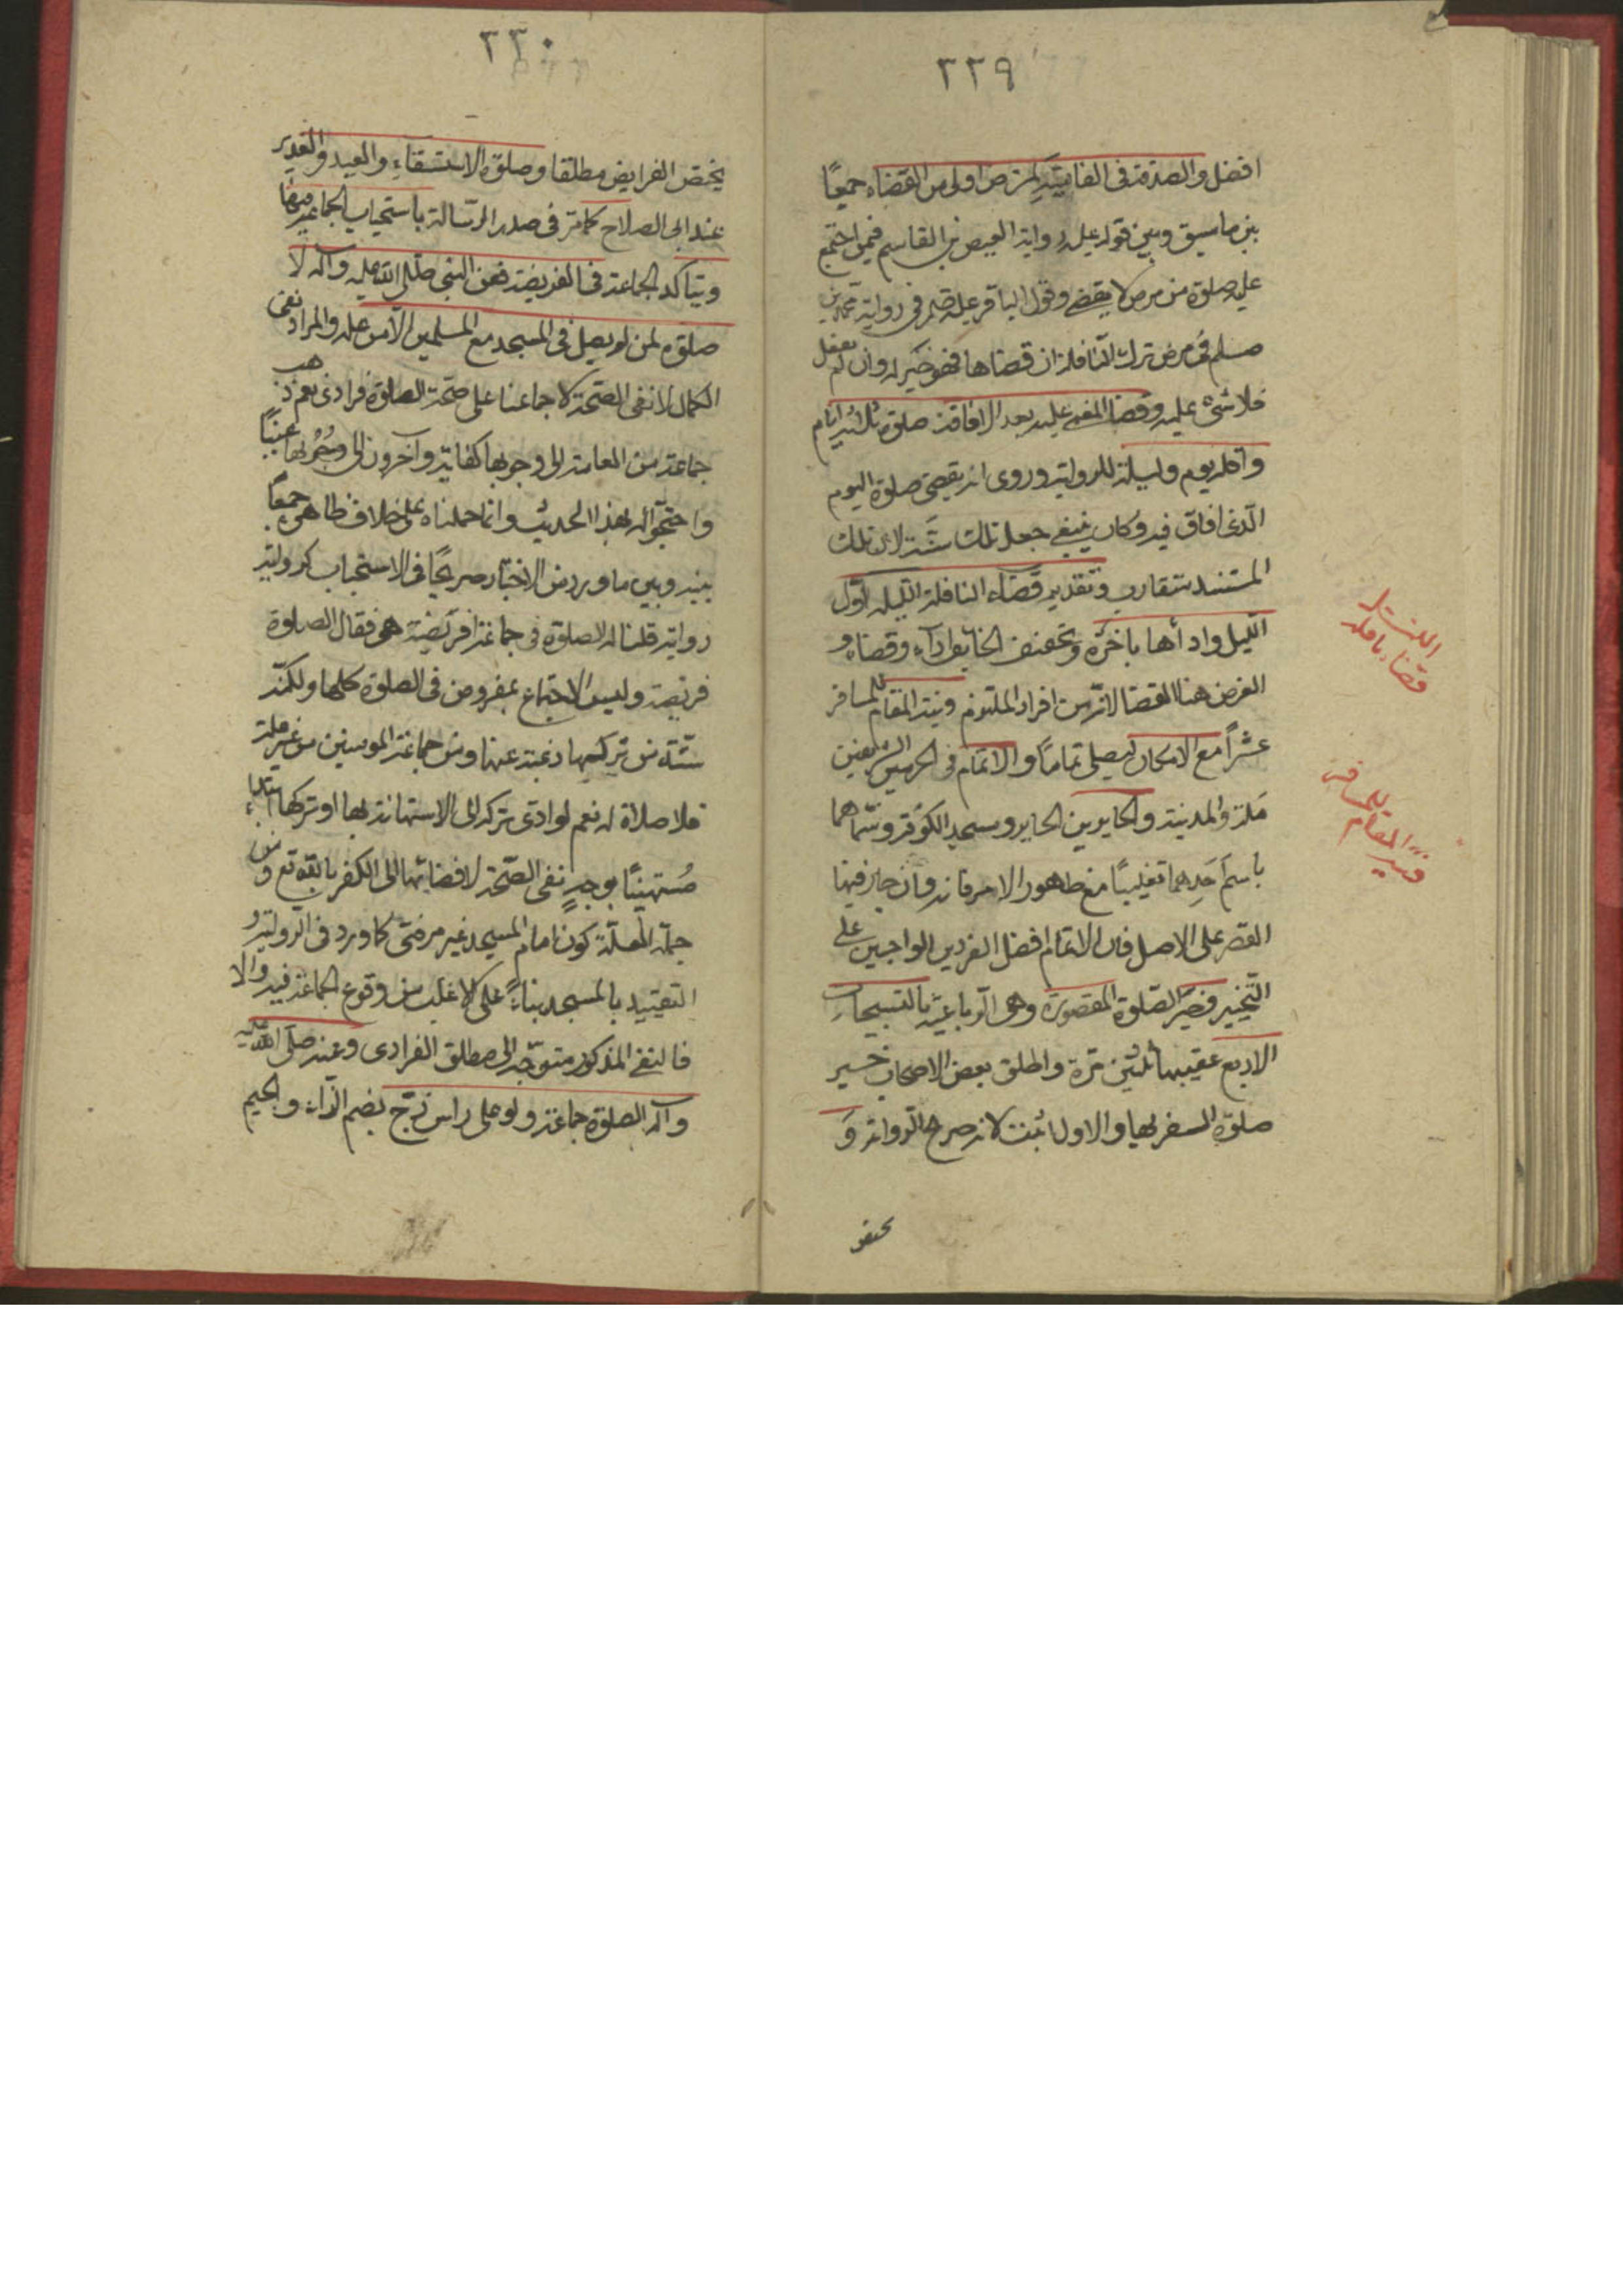 ٢٢٩
افضل والصدقة فى الفايتة لمرض اولى من القضاء جمعًا
بين ما سبق وبين قوله عليه رواية العيص بن القاسم فيمن اجتمع
عليه صلوة من مرض لا يقضى وقول الباقر عليه فى رواية محمد بن
مسلم فى مرض ترك النافلة ان قضاها فهو خير له وان لم يفعل
فلا شئ عليه وقضا المغمى عليه بعد الافاقة صلوة ثلثة ايام
واقله يوم وليلة للرواية وروى انه يقضى صلوة اليوم
الّذى افاق فيه وكان ينبغى جعل تلك سنة لان تلك
المستند متقارب وتقديم قضاء النافلة الليلة اوّل
الليل واداءها باخره وتخفيف الخايف اداء وقضاء و
الغرض هنا القضا لانه من افراد الملتزم ونية المقام للمسافر
عشراً مع الامكان ليصلى تمامًا والاتمام فى الحرمين الشريفين
مكة والمدينة والحايرين الحاير ومسجد الكوفة وسماهما
باسم احدهما تغليبًا مع ظهور الامر فانه وان جاز فيها
القصر على الاصل فان الاتمام افضل الفردين الواجبين على
التخيير وجبر الصّلوة المقصورة وهى الرباعية بالتسبيحات
الاربع عقيبها ثلثين مرة واطلق بعض الاصحاب جبر
صلوة السفر بها والاول اثبت لانه صرح الرواية و
يختص
الليلية
قضاء نافلة
للمسافر
ونية المقام
٢٣٠
يختص الفرايض مطلقا وصلوة الاستسقاء والعيد والغدير
عند ابى الصلاح كما مر فى صدر الرسالة باستحباب الجماعة فيها
ويتاكد الجماعة فى الفريضة فعن النبى صلى الله عليه وآله لا
صلوة لمن لم يصل فى المسجد مع المسلمين الا من علة والمراد نفى
الكمال لا نفى الصحة لاجماعنا على صحة الصلوة فرادى نعم ذهب
جماعة من العامة الى وجوبها كفاية وآخرون الى وجوبها عينًا
واحتجوا له بهذا الحديث وانما حملناه على خلاف ظاهره جمعًا
بينه وبين ما ورد من الاخبار صريحًا فى الاستحباب كرواية
رواية قلنا له الصلوة فى جماعة افريضة هى فقال الصلوة
فريضة وليس الاجتماع بمفروض فى الصلوة كلها ولكنّه
سنّة من تركها رغبة عنها وعن جماعة المومنين من غير علة
فلا صلاة له نعم لو ادى تركه الى الاستهانة بها او تركها
مُستهينًا بوجهٍ نفى الصّحة لافضائها الى الكفر بالله تع ومن
جملة العلّة كون امام المسجد غير مرضىّ كما ورد فى الرواية و
التقييد بالمسجد بناءً على الاغلب من وقوع الجماعة فيه والا
فالنفى المذكور متوجّه الى مطلق الفرادى وعنه صلى الله عليه
وآله الصلوة جماعة ولو على راس زجّ بضم الزاء والجيم